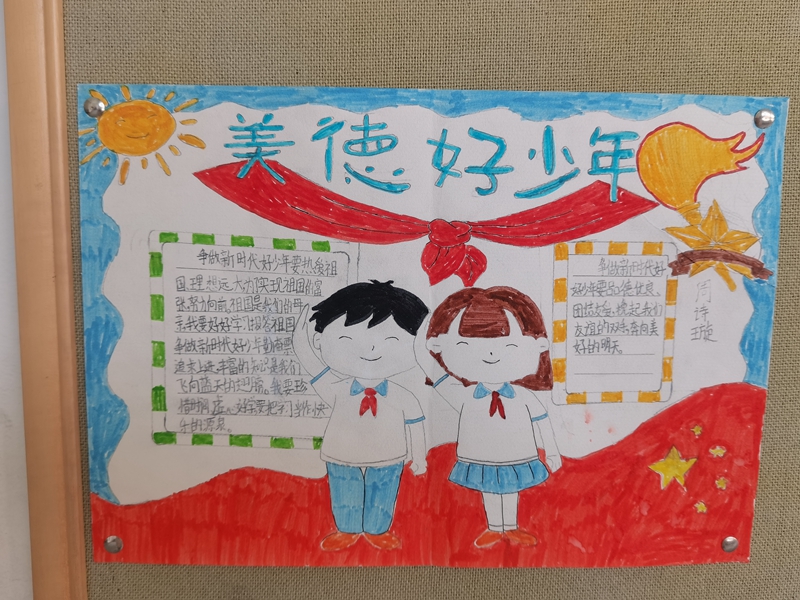 美德好少年
争做新时代好少年要热爱祖
国,理想远大,力实现祖国的富
张努力向前,祖国是我们的母
亲,我要好好学习报答祖国
争做新时代好少年勤奋
进来上进,丰富的知识是我们
飞向蓝天的翅膀。我要珍
惜时
乐的源泉。
争做新时代好
好少年要品德优良,
团结友善,挽起我们
友谊的双手奔向美
好的明天。
周
诗